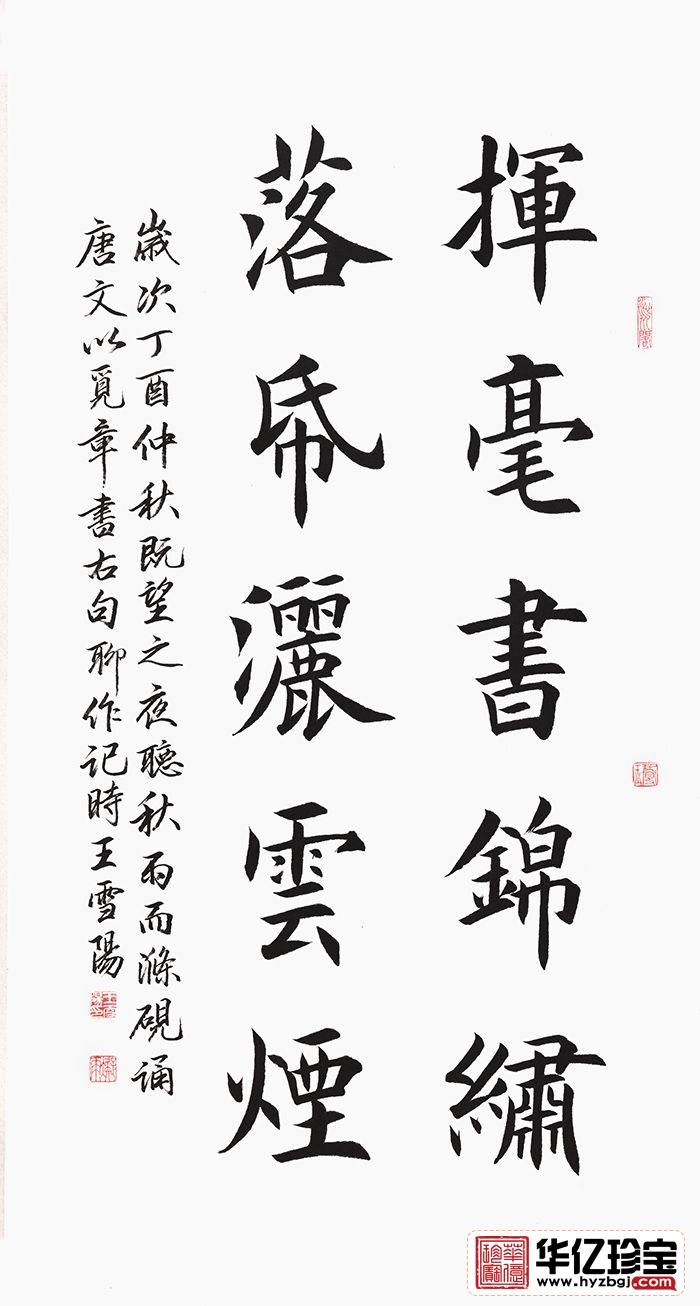 揮毫書錦繡
落帋灑雲煙
歲次丁酉仲秋既望之夜聽秋雨而滌硯誦
唐文以覓章書右句聊作記時王雪陽
华亿珍宝
www.hyzbgj.com